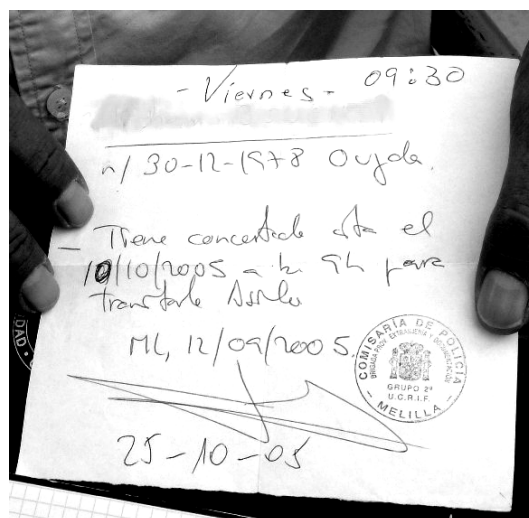 - Viernes - 09:30
n/ 30-12-1978 Oujda.
- Tiene concertada cita el
10/10/2005 a las 9h para
tramitarle Asilo
ML, 12/09/2005.
COMISARÍA DE POLICÍA
BRIGADA PROV. EXTRANJERÍA Y DOCUMENTACIÓN
GRUPO 2º
U.C.R.I.F.
- MELILLA -
25-10-05
DAD